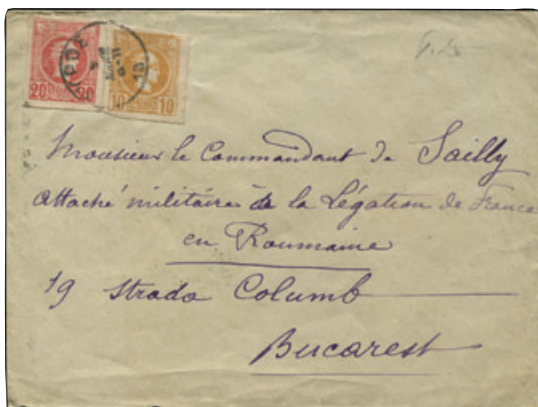 20 20
10 10
Monsieur le Commandant de Sailly
attaché militaire à la Légation de France
en Roumanie
19 Strada Columb
Bucarest